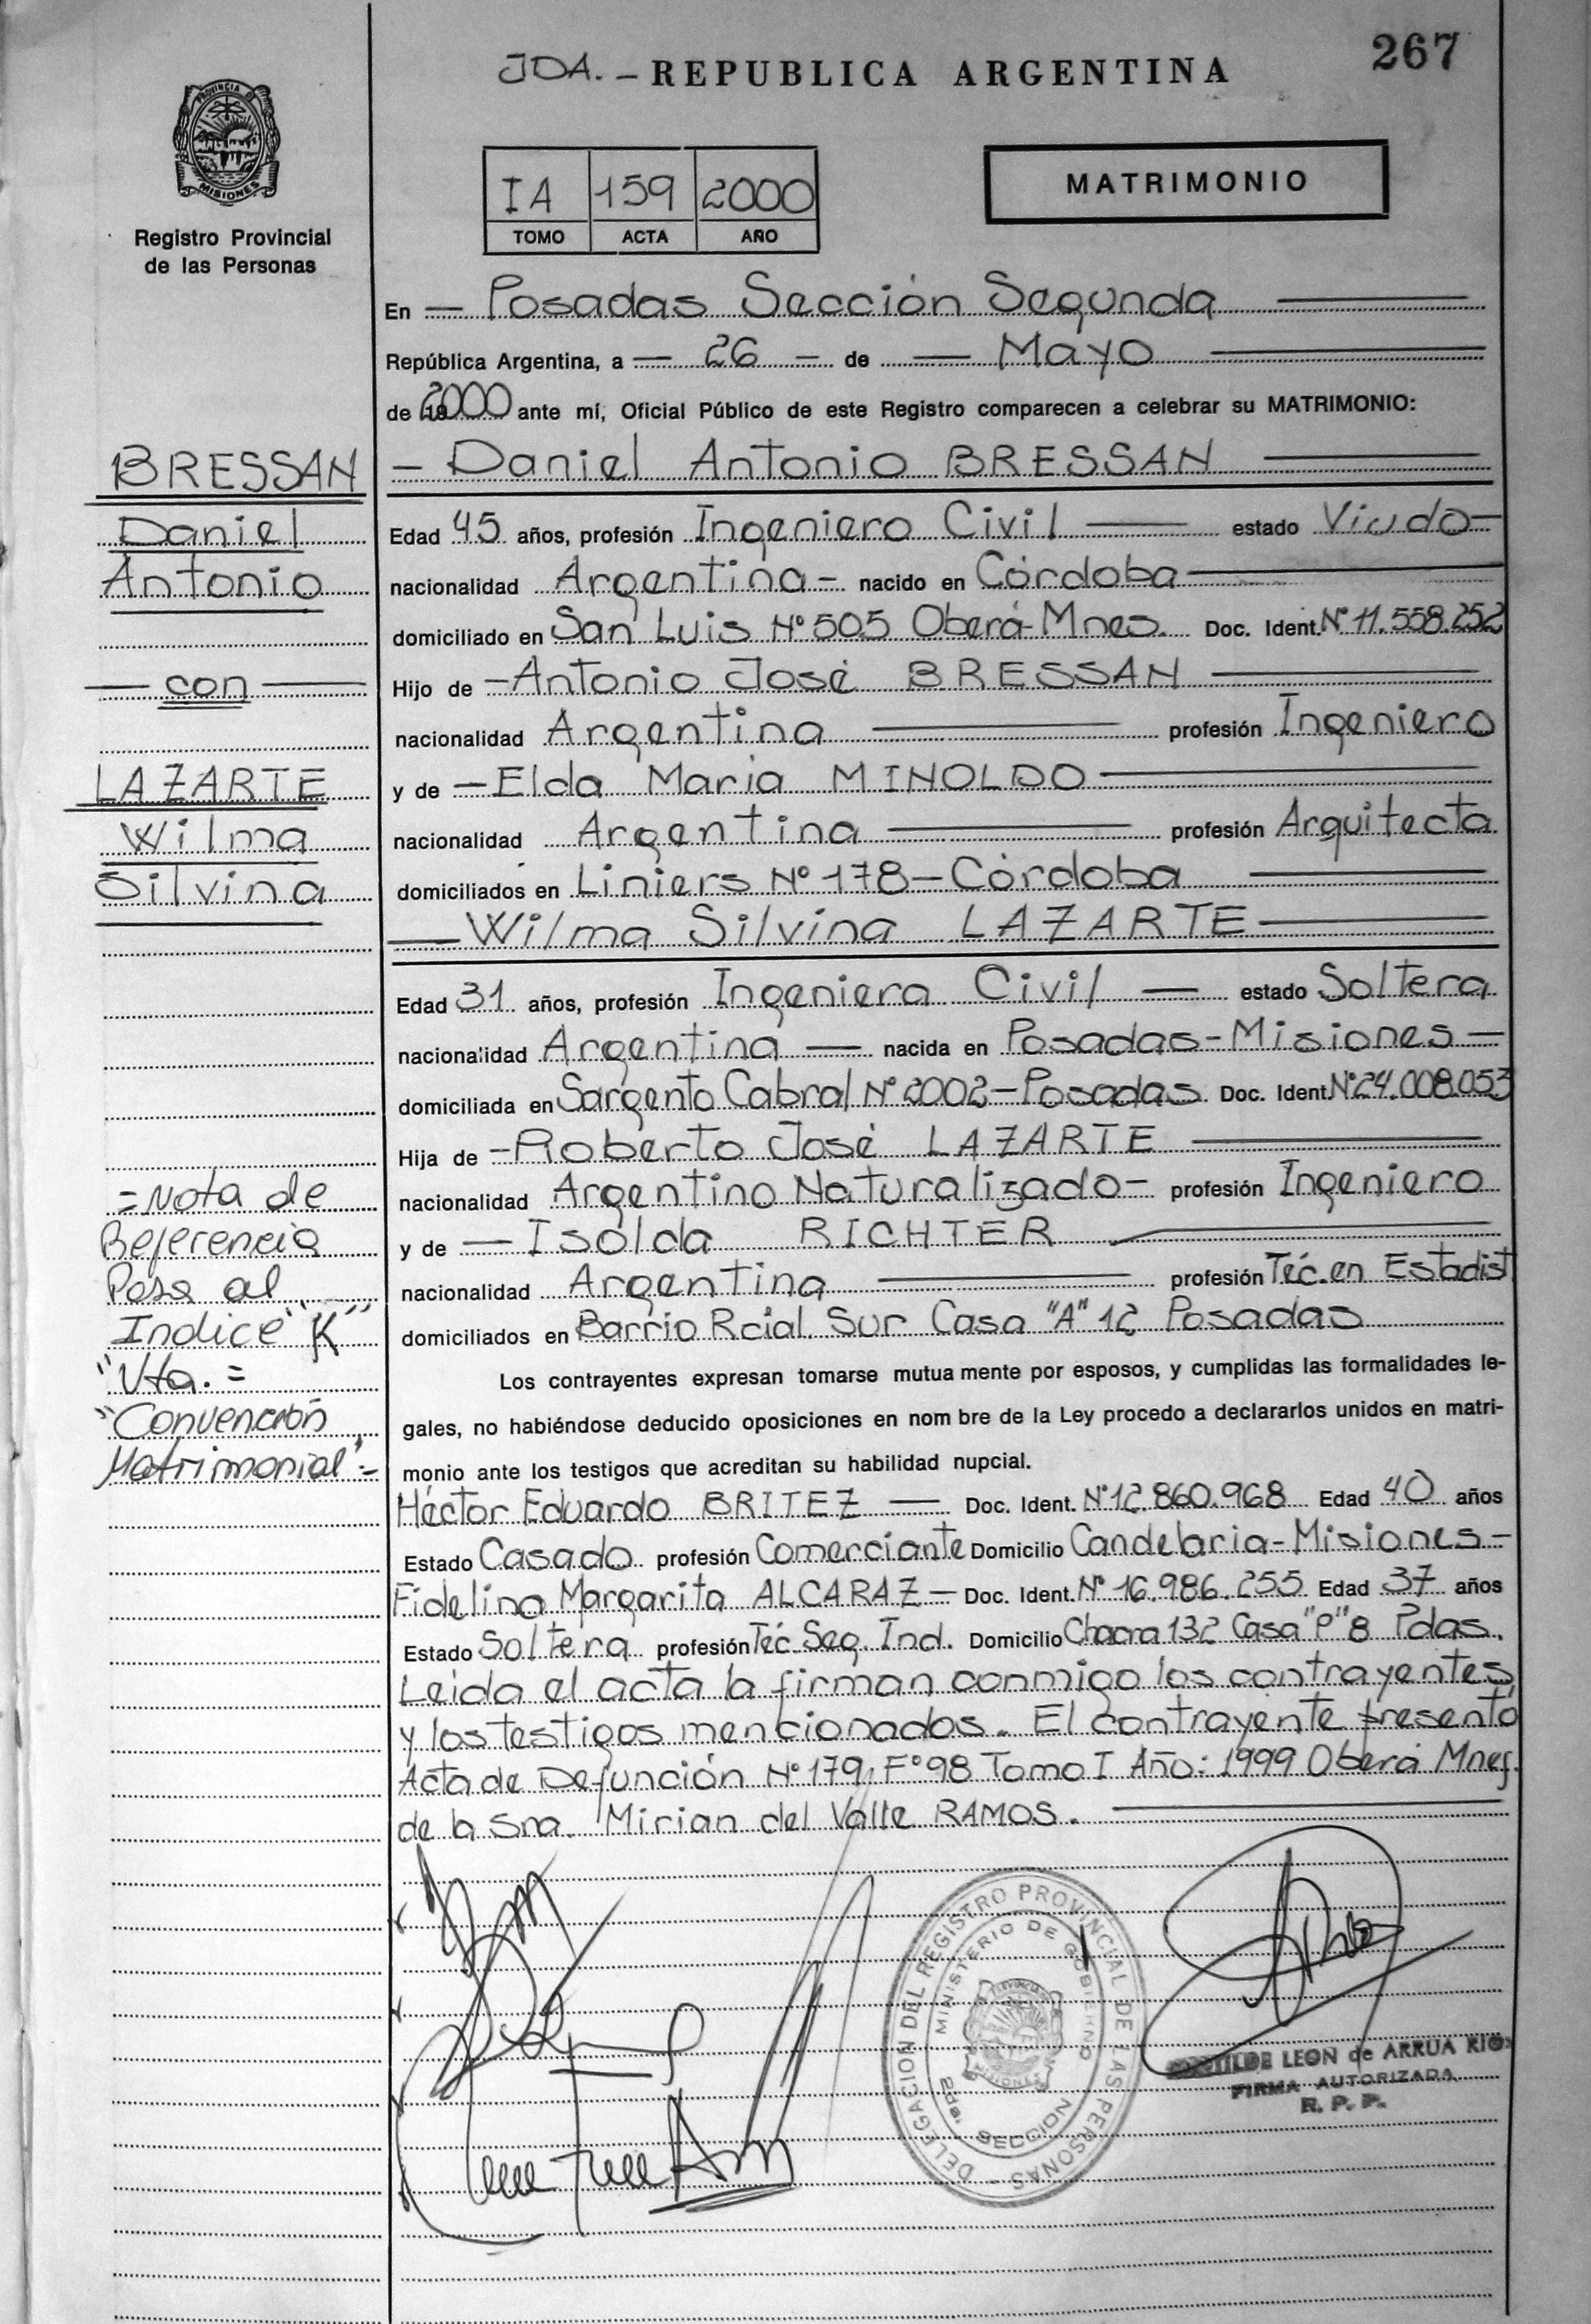 267
JDA. - REPUBLICA ARGENTINA
PROVINCIA DE
MISIONES
Registro Provincial
de las Personas
IA 159 2000
TOMO ACTA AÑO
MATRIMONIO
En - Posadas Sección Segunda
República Argentina, a - 26 - de - Mayo
de 2000 ante mí, Oficial Público de este Registro comparecen a celebrar su MATRIMONIO:
BRESSAN
Daniel
Antonio
- con -
LAZARTE
Wilma
Silvina
= Nota de
Referencia
Pasa al
Indice "K"
"Vta. =
"Convención
Matrimonial" =
- Daniel Antonio BRESSAN
Edad 45 años, profesión Ingeniero Civil estado Viudo -
nacionalidad Argentina - nacido en Córdoba
domiciliado en San Luis Nº 505 Oberá-Mnes. Doc. Ident. Nº 11.558.252
Hijo de - Antonio José BRESSAN
nacionalidad Argentina profesión Ingeniero
y de - Elda Maria MINOLDO
nacionalidad Argentina profesión Arquitecta
domiciliados en Liniers Nº 178 - Córdoba
- Wilma Silvina LAZARTE
Edad 31 años, profesión Ingeniera Civil - estado Soltera
nacionalidad Argentina - nacida en Posadas - Misiones -
domiciliada en Sargento Cabral Nº 2002 - Posadas Doc. Ident. Nº 24.008.053
Hija de - Roberto José LAZARTE
nacionalidad Argentino Naturalizado - profesión Ingeniero
y de - Isolda RICHTER
nacionalidad Argentina profesión Téc. en Estadist
domiciliados en Barrio Rcial. Sur Casa "A" 12 Posadas
Los contrayentes expresan tomarse mutua mente por esposos, y cumplidas las formalidades le-
gales, no habiéndose deducido oposiciones en nom bre de la Ley procedo a declararlos unidos en matri-
monio ante los testigos que acreditan su habilidad nupcial.
Héctor Eduardo BRITEZ - Doc. Ident. Nº 12.860.968 Edad 40 años
Estado Casado profesión Comerciante Domicilio Candelaria - Misiones -
Fidelina Margarita ALCARAZ - Doc. Ident. Nº 16.986.255 Edad 37 años
Estado Soltera profesión Téc. Seg. Ind. Domicilio Chacra 132 Casa "P" 8 Pdas.
Leida el acta la firman conmigo los contrayentes
y los testigos mencionados. El contrayente presentó
Acta de Defunción Nº 179, Fº 98 Tomo I Año: 1999 Oberá Mnes.
de la Sra. Mirian del Valle RAMOS.
DELEGACION DEL REGISTRO PROVINCIAL DE LAS PERSONAS
MINISTERIO DE GOBIERNO
2da. SECCION
LEON de ARRUA RIOS
FIRMA AUTORIZADA
R. P. P.